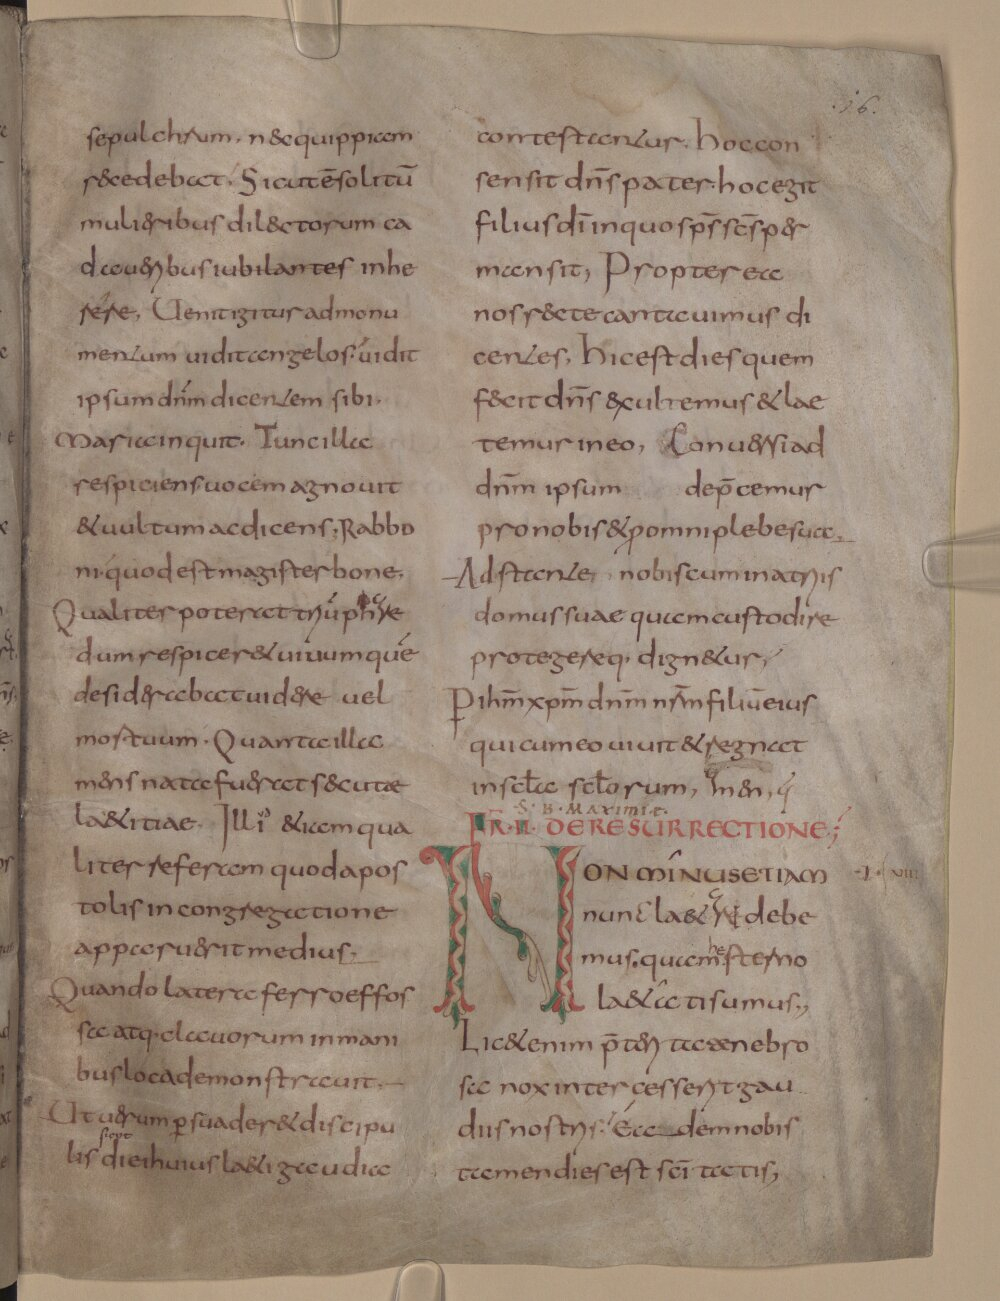 16.
sepulchrum. n&quippiam
r&cedebat. Sicut ē solitū
mulieribus dil&ctorum ca
daueribus iubilantes inhe
rere, Uenit igitur ad monu
mentum uidit angelos. uidit
ipsum dn̄m dicentem sibi.
Maria inquit. Tunc illa
respiciens uocem agnouit
& uultum ac dicens, Rabbo
ni. quod est magister bone.
Qualiter poter&
dum respicer& uiuum quē
desiderabat uidere uel
mortuum. Quantae illae
mens nata fuer& secutae
la&itiae. Illi & iam qua
liter referam quod apos
tolis in congregatione
apparuerit medius.
Quando latera ferro effos
sa atq. clauorum in mani
bus loca demonstrauit.
Ut uerum p suader& discipu
lis diei huius la&i gaudia
contestantur. hoc con
sensit dn̄s pater. hoc egit
filius dī in quo sp̄s sc̄s per
mansit, Propter ea
nos r&te cantauimus di
centes. hic est dies quem
fecit dn̄s &xultemus & lae
temur in eo, Conuersi ad
dn̄m ipsum dep̄cemur
pro nobis & p omni plebe sua.
Adstante nobiscum in atriis
domus suae quam custodire
protegereq. dign&ur,
P ihm̄ xpm̄ dn̄m nr̄m filiū eius
qui cum eo uiuit & regnat
in sc̄la sc̄lorum, Amen,
S. B. Maximi e.
FR. II. DE RESURRECTIONE;
NON MINUS ETIAM
nunc la& debe
mus. quam hesterno
la&ati sumus,
Lic& enim p̄teri ta tenebro
sa nox intercesserit gau
diis nostris. ea dem nobis
tamen dies est sc̄i tatis,